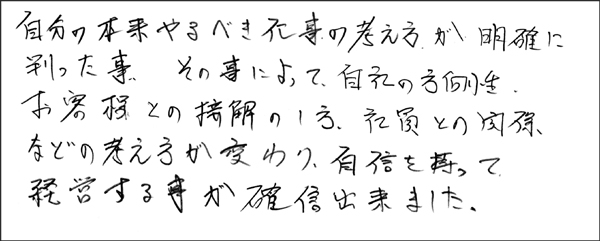 自分の本来やるべき仕事の考え方が明確に
判った事 その事によって、自社の方向性、
お客様との接解の仕方、社員との関係
などの考え方が変わり、自信を持って
経営する事が確信出来ました。